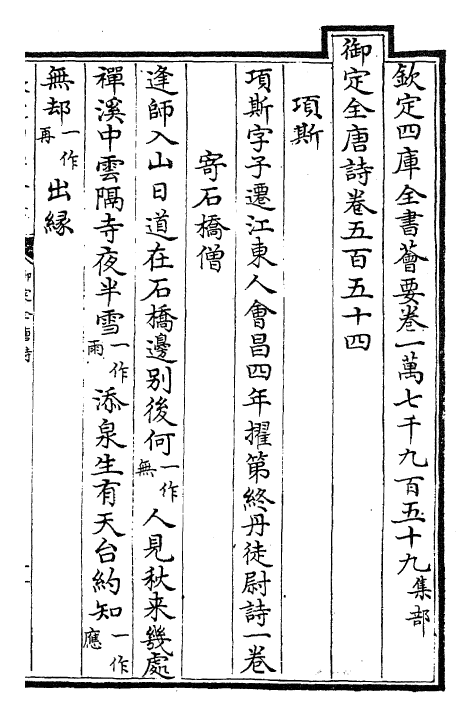 欽定四庫全書薈要卷一萬七千九百五十九集部
御定全唐詩卷五百五十四
項斯
項斯字子遷江東人會昌四年擢第終丹徒尉詩一卷
寄石橋僧
逢師入山日道在石橋邊別後何一作無人見秋来幾處
禪溪中雲隔寺夜半雪一作雨添泉生有天台約知一作應
無却一作再出緣